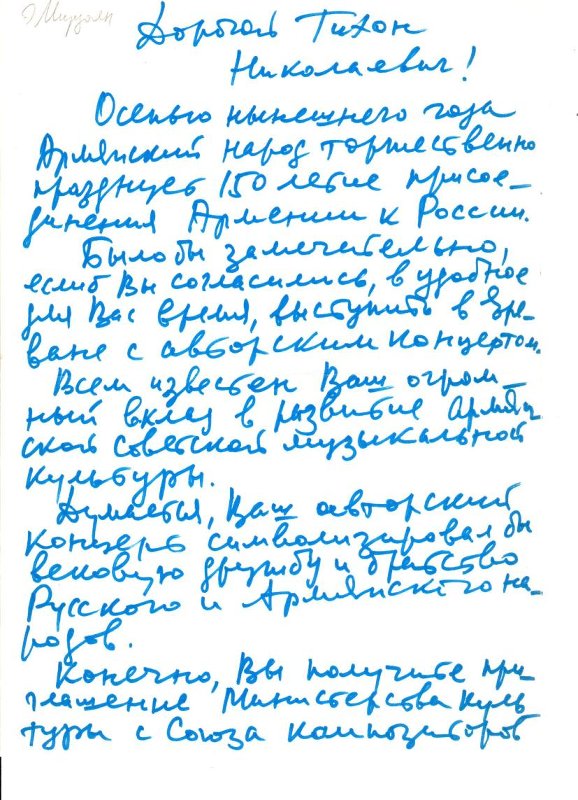 Э Мирзоян
Дорогой Тихон
Николаевич!
Осенью нынешнего года
Армянский народ торжественно
празднует 150 летие присое-
динения Армении к России.
Было бы замечательно,
еслиб Вы согласились, в удобное
для Вас время, выступить в Ере-
ване с авторским концертом.
Всем известен Ваш огром-
ный вклад в развитие Армян
ской советской музыкальной
культуры.
Думается, Ваш авторский
концерт символизировал бы
вековую дружбу и братство
Русского и Армянского на-
родов.
Конечно, Вы получите при-
глашение Министерства куль
туры с Союза композиторов